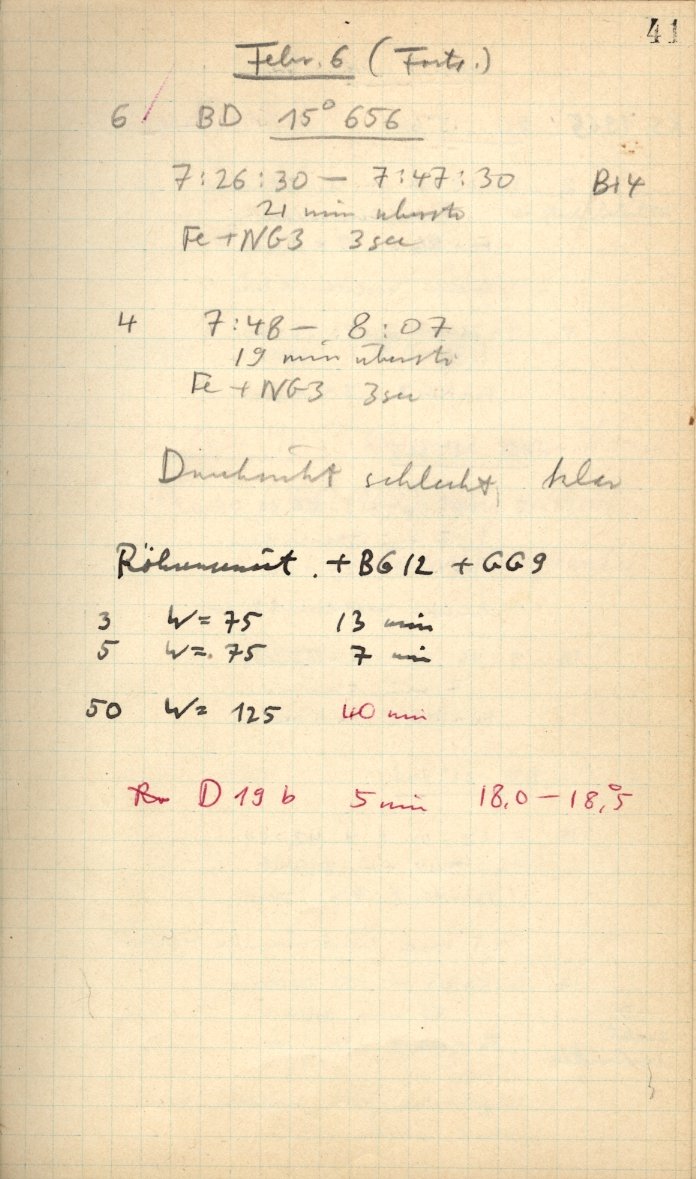 41
Febr. 6 (Forts.)
6 / BD 15° 656
7:26:30 – 7:47:30 B+4
21 min überstr
Fe + NG3 3 sec
4 7:48 – 8:07
19 min überstr
Fe + NG3 3 sec
Durchsicht schlecht, klar
+ BG12 + GG9
3 W = 75 13 min
5 W = 75 7 min
50 W = 125 40 min
D 19 b 5 min 18,0 – 18,°5